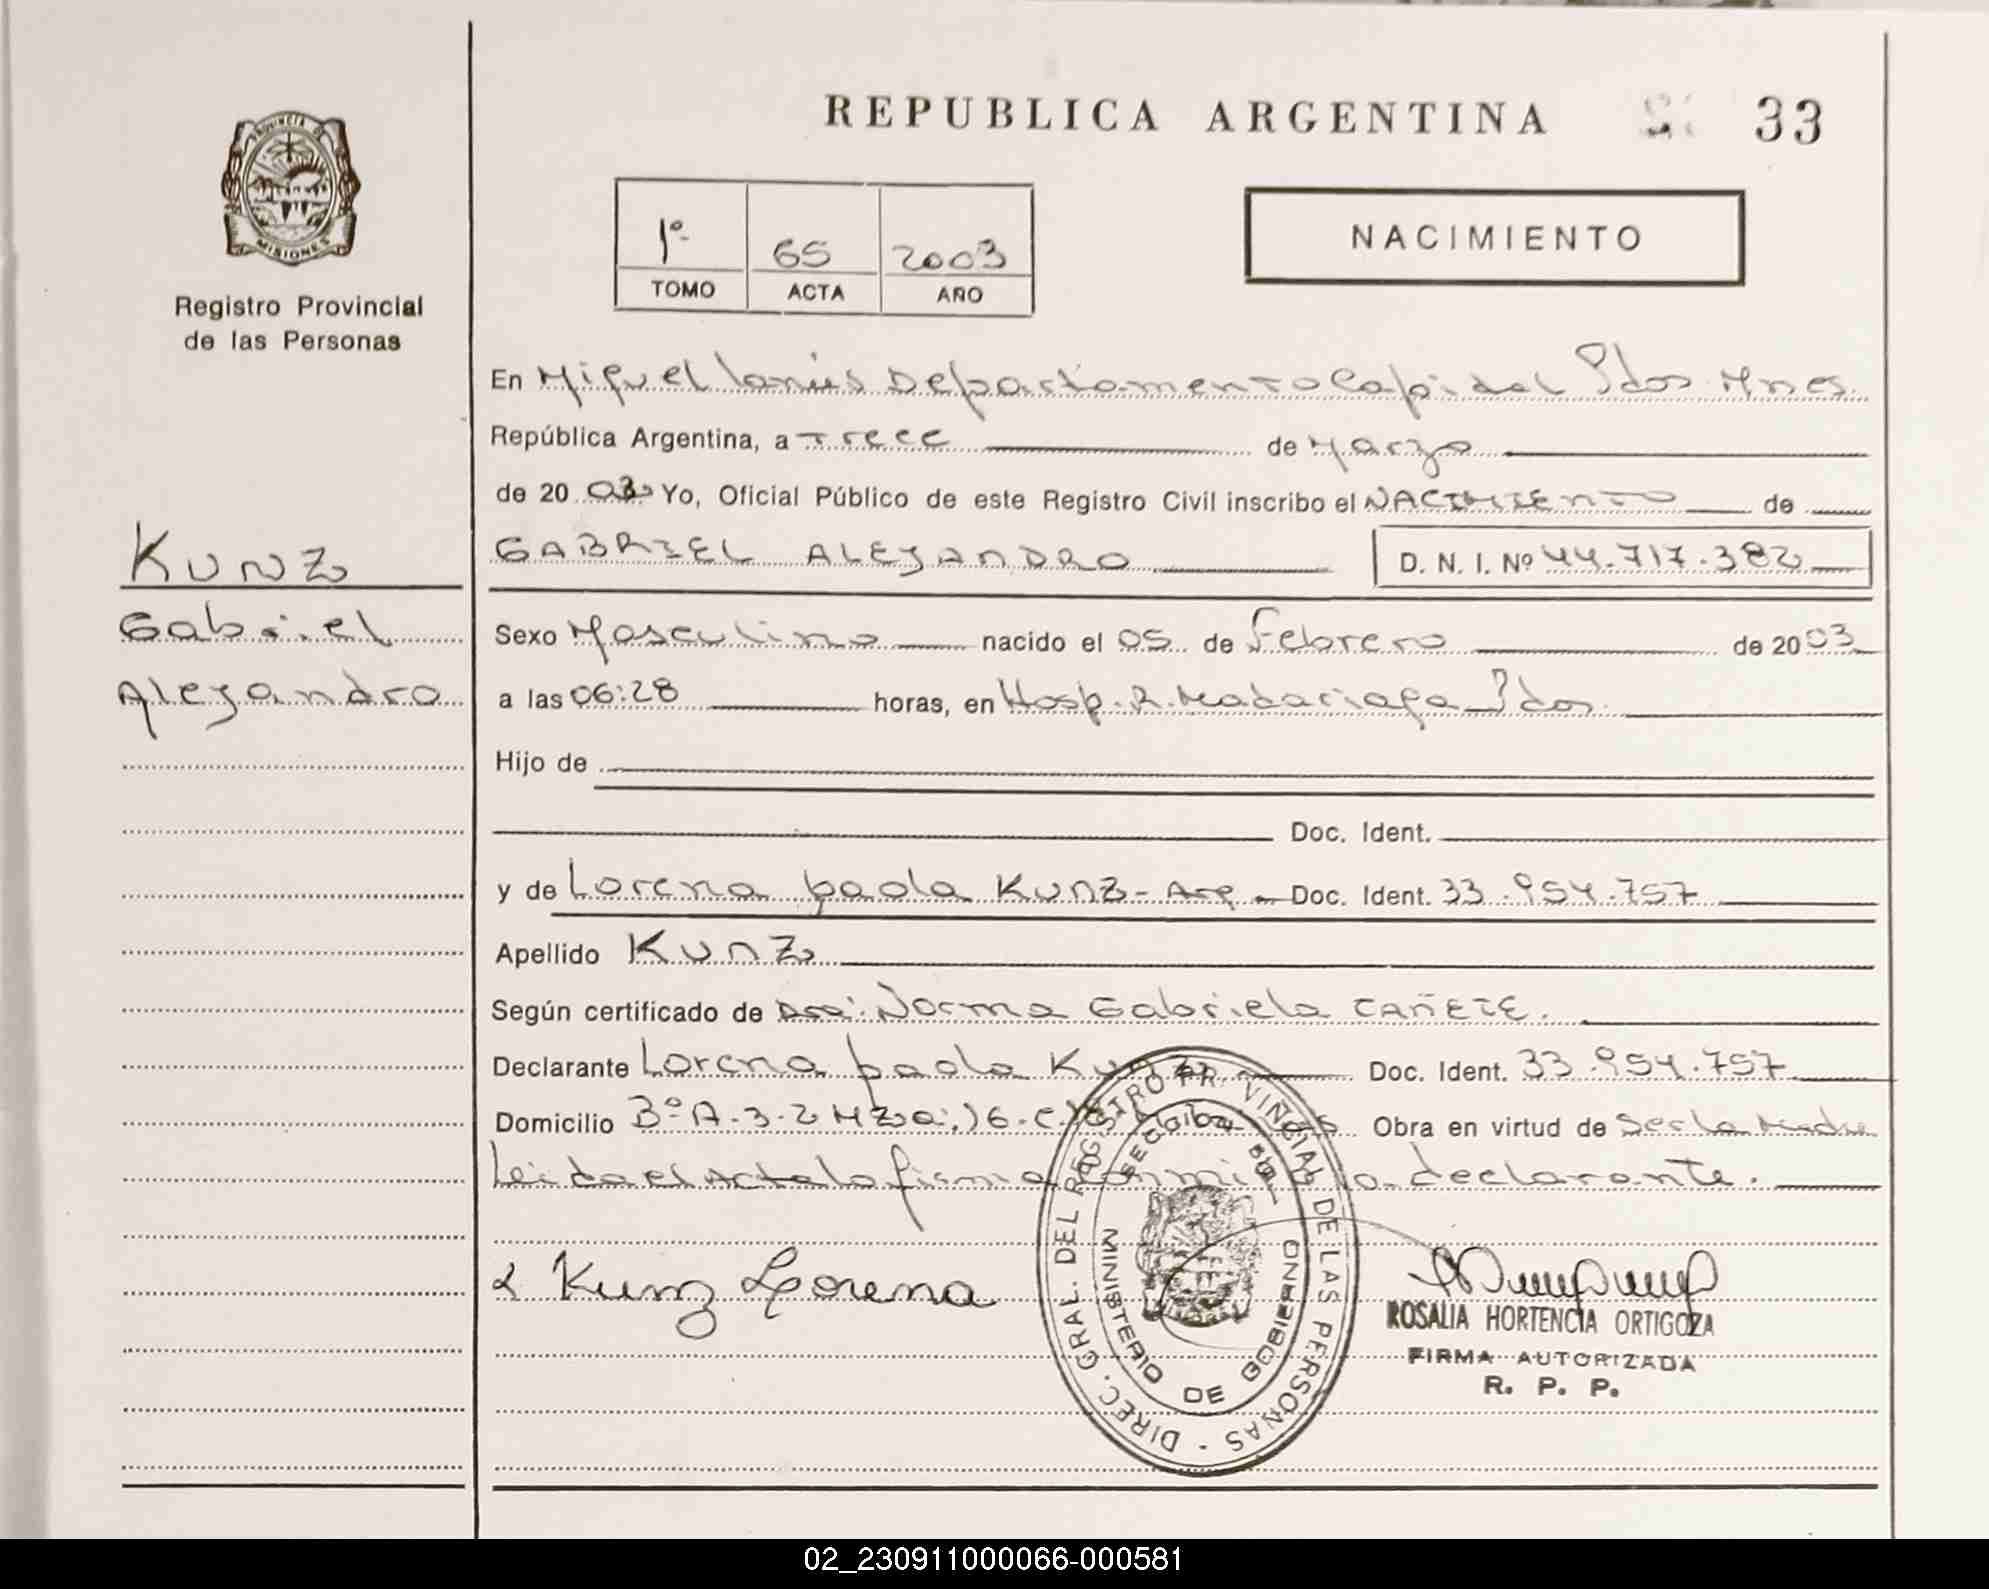 REPUBLICA ARGENTINA 33
PROVINCIA DE
MISIONES
Registro Provincial
de las Personas
1º 65 2003
TOMO ACTA AÑO
NACIMIENTO
En Miguel Lanús Departamento Capital Pdas Mnes.
República Argentina, a Trece de Marzo
de 2003 Yo, Oficial Público de este Registro Civil inscribo el NACIMIENTO de
KUNZ
Gabriel
Alejandro
GABRIEL ALEJANDRO D. N. I. Nº 44.717.382
Sexo Masculino nacido el 05 de Febrero de 2003
a las 06:28 horas, en Hosp. R. Madariaga Pdas.
Hijo de
Doc. Ident.
y de Lorena paola KUNZ - Arg Doc. Ident. 33.954.757
Apellido KUNZ
Según certificado de Dra: Norma Gabriela CAÑETE.
Declarante Lorena paola Kunz Doc. Ident. 33.954.757
Domicilio Bº A-3-2 Mza: 16-C. Obra en virtud de Ser la Madre
Leida el Acta la firma conmigo la declarante.
Kunz Lorena
DIREC. GRAL. DEL REGISTRO PROVINCIAL DE LAS PERSONAS
MINISTERIO DE GOBIERNO
ROSALIA HORTENCIA ORTIGOZA
FIRMA AUTORIZADA
R. P. P.
02_230911000066-000581